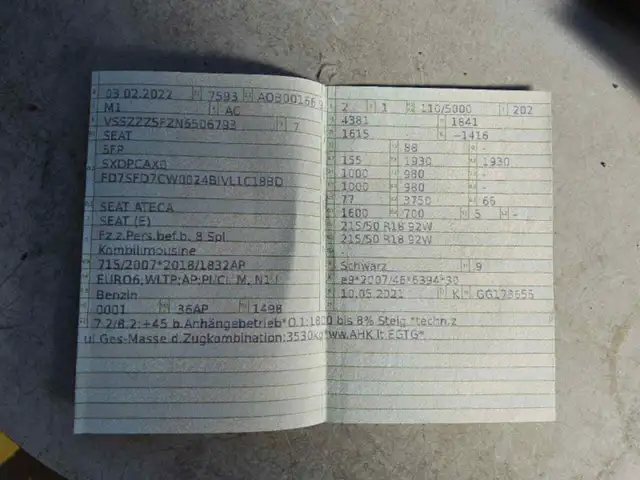 03.02.2022 7593
M1 AC
7
SEAT
5FP
SEAT ATECA
SEAT (E)
Fz.z.Pers.bef.b. 8 Spl
Kombilimousine
715/2007*2018/1832AP
Benzin
0001 36AP 1498
2 1 110/5000 202
4381 1841
1615 - -1416
88 -
155 1930 1930
1000 980 -
1000 980 -
77 3750 66
1600 700 5 -
215/50 R18 92W
215/50 R18 92W
-
Schwarz 9
e9*2007/46*6394*30
10.05.2021 K
7.2/8.2: +45 b.Anhängebetrieb* bis 8% Steig.*techn.z
ul Ges-Masse d.Zugkombination:3530kg*